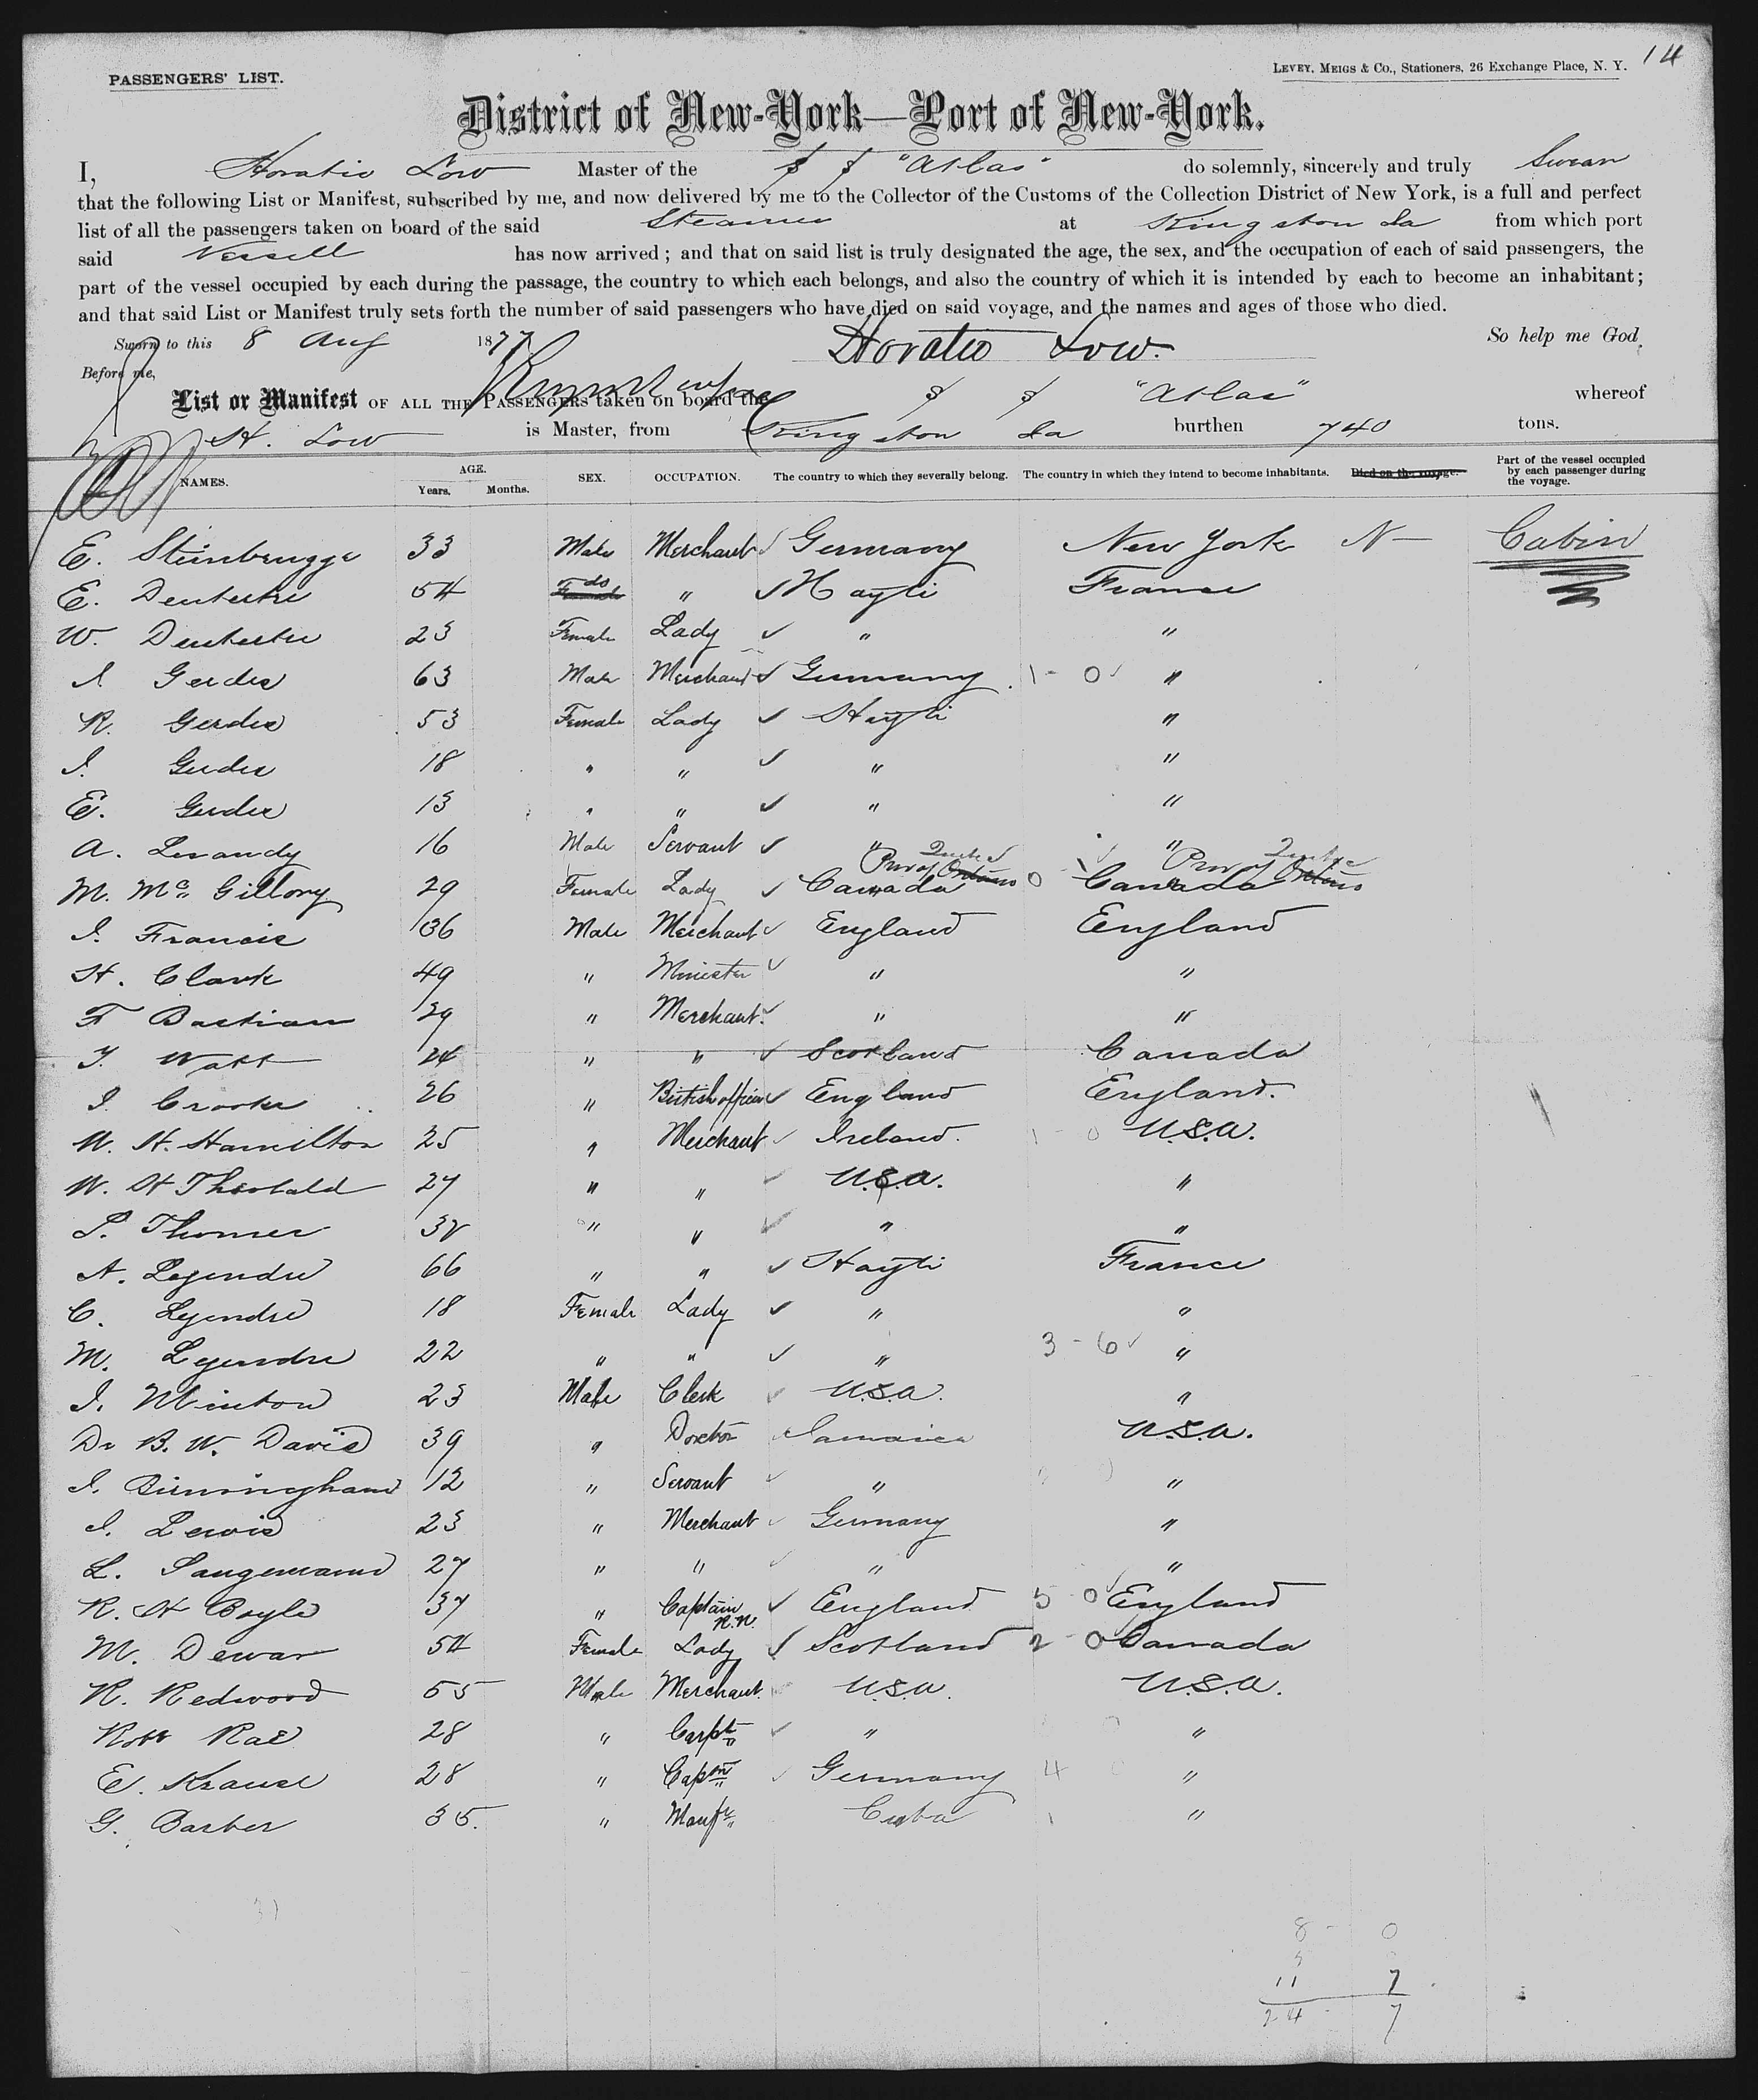 14
PASSENGERS' LIST.
LEVEY, MEIGS & Co., Stationers, 26 Exchange Place, N. Y.
District of New-York—Port of New-York.
I, Horatio Low Master of the S S "Atlas" do solemnly, sincerely and truly Swear
that the following List or Manifest, subscribed by me, and now delivered by me to the Collector of the Customs of the Collection District of New York, is a full and perfect
list of all the passengers taken on board of the said Steamer at Kingston Ja from which port
said Vessell has now arrived; and that on said list is truly designated the age, the sex, and the occupation of each of said passengers, the
part of the vessel occupied by each during the passage, the country to which each belongs, and also the country of which it is intended by each to become an inhabitant;
and that said List or Manifest truly sets forth the number of said passengers who have died on said voyage, and the names and ages of those who died.
Sworn to this 8 Aug 1877 Horatio Low. So help me God.
Before me,
List or Manifest OF ALL THE PASSENGERS taken on board the S S "Atlas" whereof
H. Low is Master, from Kingston Ja burthen 740 tons.
NAMES. AGE. Years. Months. SEX. OCCUPATION. The country to which they severally belong. The country in which they intend to become inhabitants. Died on the voyage. Part of the vessel occupied by each passenger during the voyage.
E. Steinbrugge 33 Male Merchant Germany New York N— Cabin
E. Deutertre 54 do " Hayti France
W. Deutertre 23 Female Lady " "
J. Gerdes 63 Male Merchant Germany 1 - 0 "
R. Gerdes 53 Female Lady Hayti "
J. Gerdes 18 " " " "
E. Gerdes 13 " " " "
A. Levandy 16 Male Servant " "
M. Mc Gillory 29 Female Lady Prov of Ontario Quebec Canada 0 Prov of Ontario Quebec Canada
J. Francis 36 Male Merchant England England
H. Clark 49 " Minister " "
F Bastian 29 " Merchant. " "
T. Watt 24 " " Scotland Canada
J. Crooke 26 " British officer England England.
W. H. Hamilton 25 " Merchant Ireland. 1 - 0 U.S.A.
W. H Theobald 27 " " U.S.A. "
P. Thomes " " " "
A. Legendre 66 " " Hayti France
C. Legendre 18 Female Lady " "
M. Legendre 22 " " " 3 - 6 "
J. Minton 23 Male Clerk U.S.A. "
Dr B. W. Davis 39 " Doctor Jamaica U.S.A.
J. Birmingham 12 " Servant " "
J. Lewis 23 " Merchant Germany "
L. Langemann 27 " " " "
R. H Boyle 37 " Captain R.N. England 5 0 England
M. Dewar 54 Female Lady Scotland 2 0 Canada
R. Redwood 55 Male Merchant. U.S.A. U.S.A.
Robt Rae 28 " Carptr " "
E. Krause 28 " Capn Germany 4 "
G. Barber 35. " Manfr Cuba 1 "
31
8 - 0
5
11 7
24 - 7